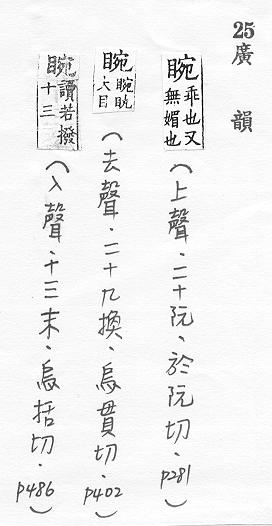 25 廣韻
睕 乖也又無媚也（上聲、二十阮、於阮切、p281）
睕 睕 大目（去聲、二十九換、烏貫切、p402）
睕 讀若撥 十三（入聲、十三末、烏括切、p486）